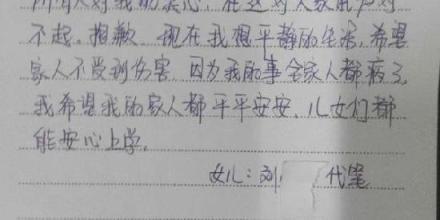 所有人对我的关心，在这对大家说声对
不起。抱歉 现在我想平静的生活，希望
家人不受到伤害 因为我的事全家人都病了，
我希望我的家人都平平安安、儿女们都
能安心上学。
女儿：刘 代笔